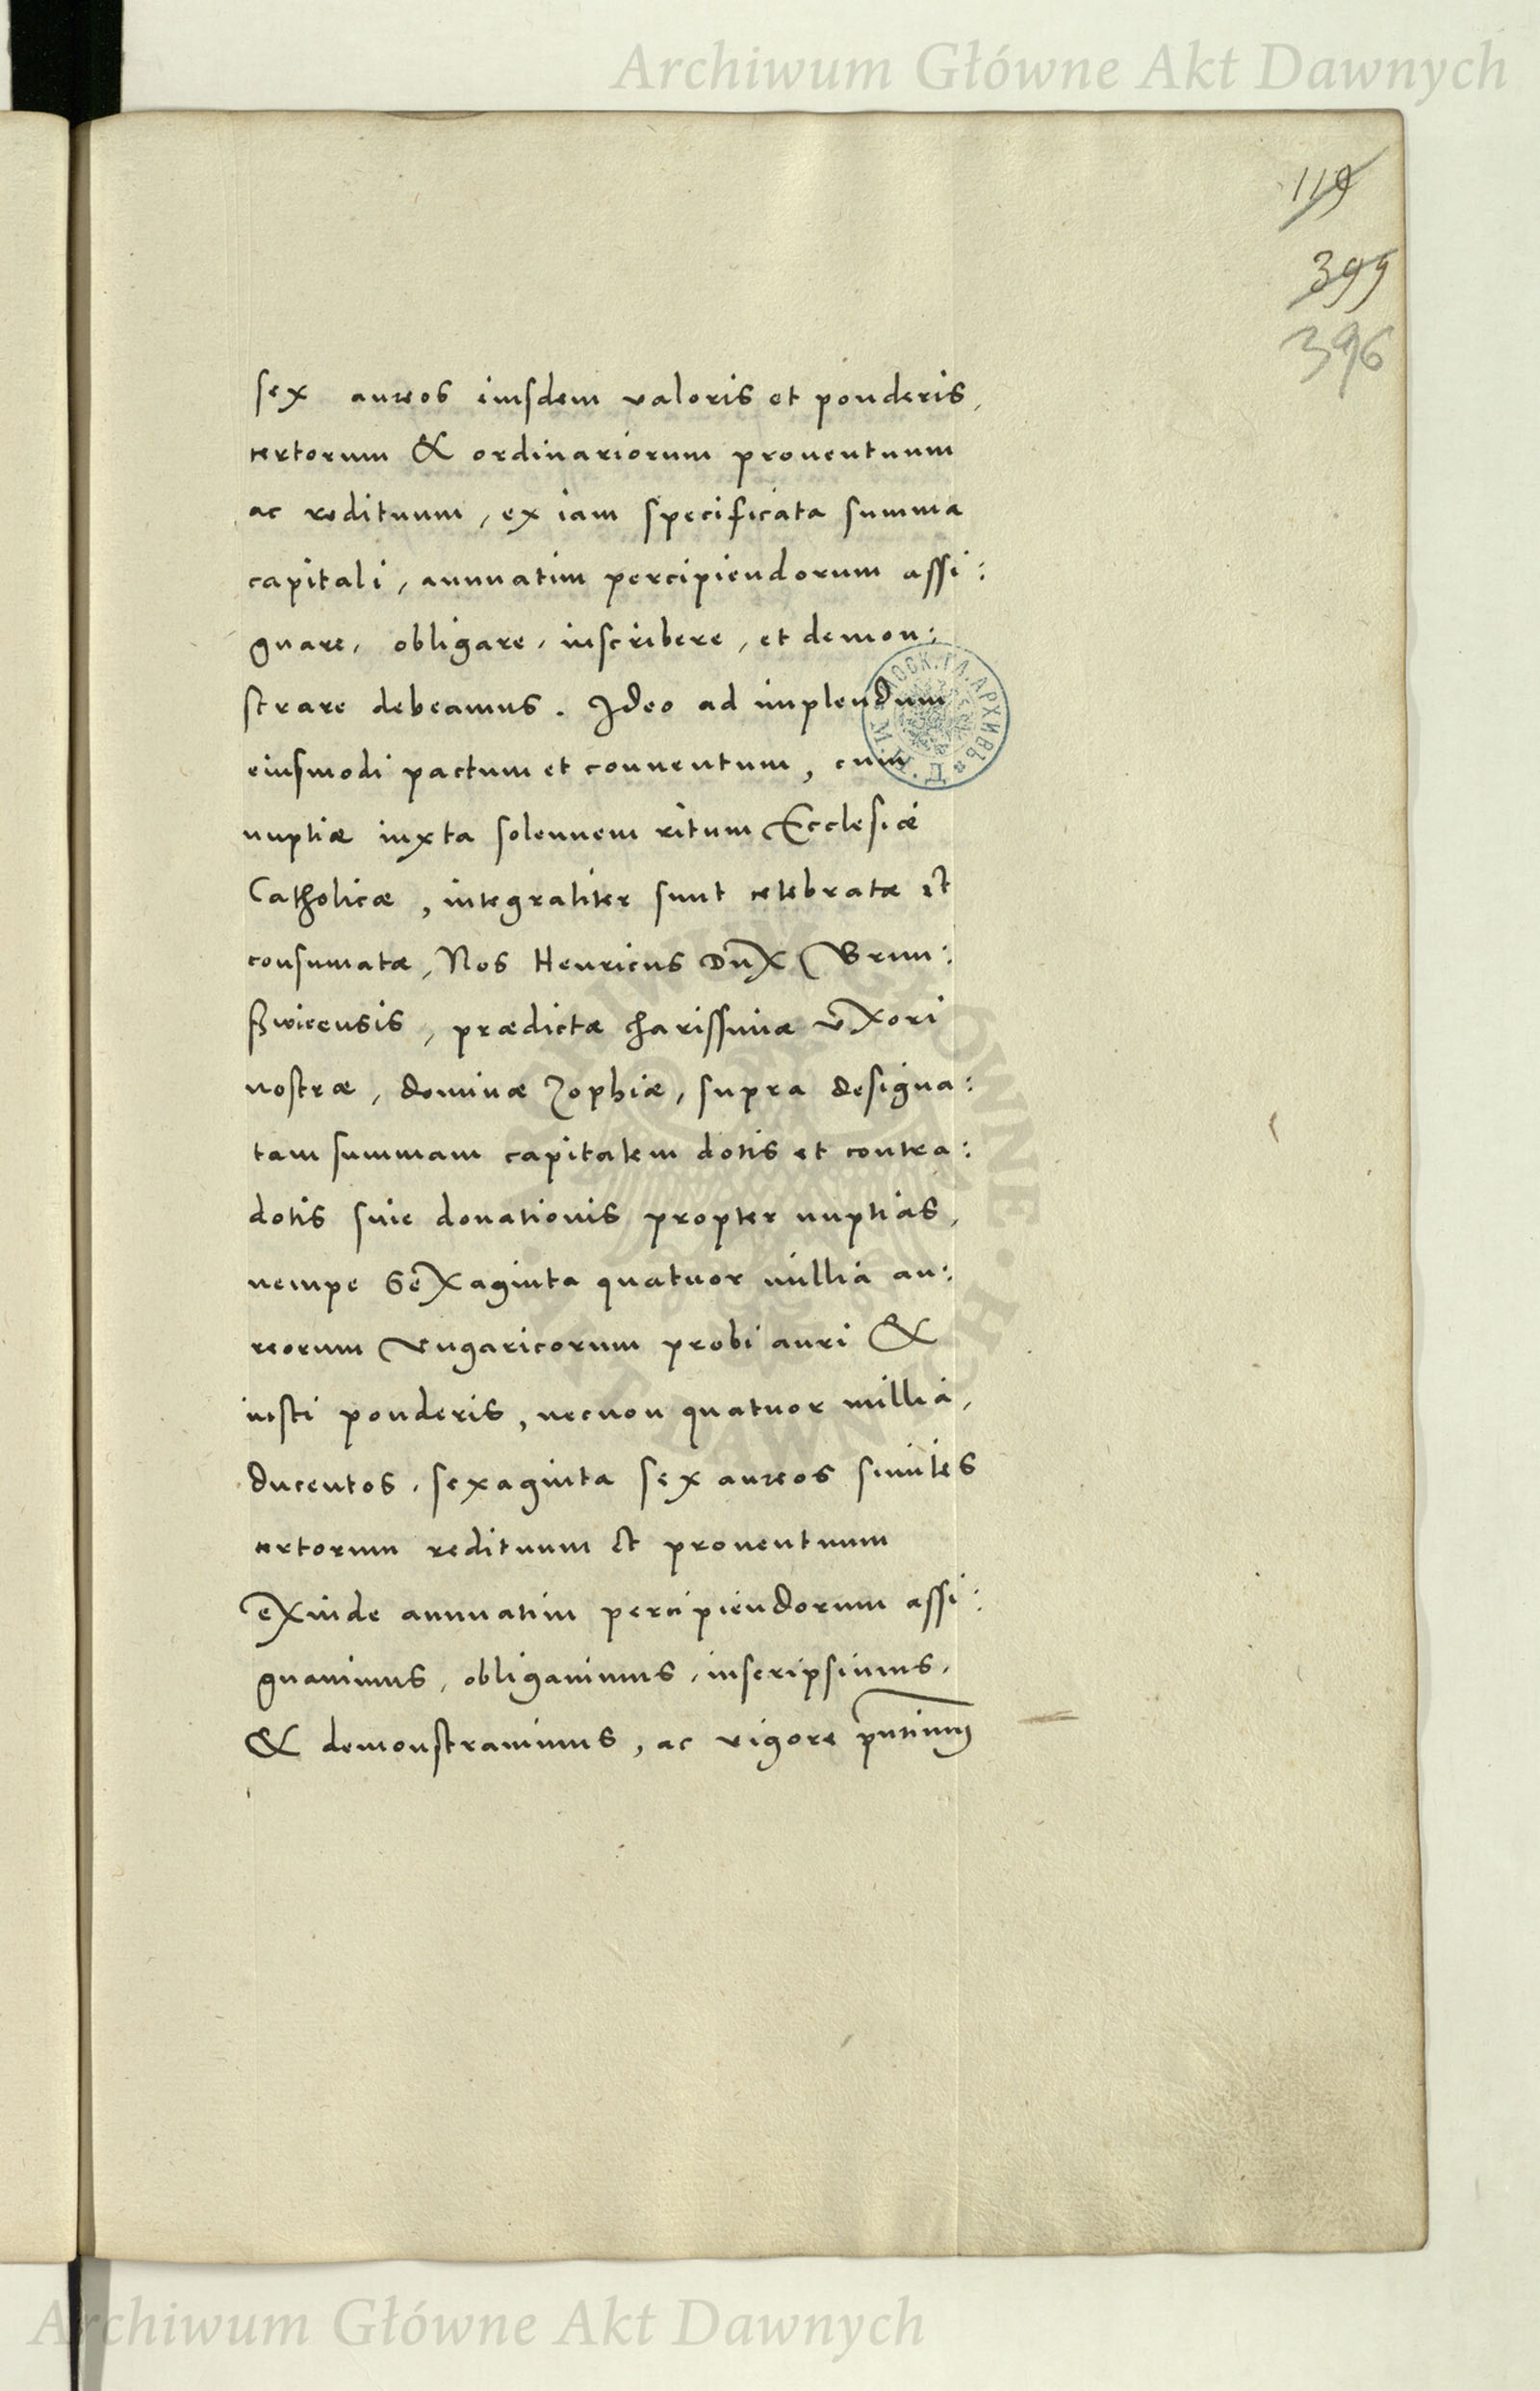 Archiwum Główne Akt Dawnych
119
399
396
sex aureos eiusdem valoris et ponderis,
certorum & ordinariorum prouentuum
ac redituum, ex iam specificata summa
capitali, annuatim percipiendorum assi:
gnare, obligare, inscribere, et demon:
strare debeamus. Ideo ad implendum
eiusmodi pactum et conuentum, cum
nuptiæ iuxta solennem ritum Ecclesiæ
Catholicæ, integraliter sunt celebratæ et
consumatæ, Nos Henricus Dux Brun:
ßwicensis, prædictæ charissimæ vxori
nostræ, dominæ Zophiæ, supra designa:
tam summam capitalem dotis et contra:
dotis siue donationis propter nuptias,
nempe Sexaginta quatuor millia au:
reorum Vngaricorum probi auri &
iusti ponderis, necnon quatuor millia,
ducentos, sexaginta sex aureos similes
certorum redituum et prouentuum
exinde annuatim percipiendorum assi:
gnauimus, obligauimus, inscripsimus,
& demonstrauimus, ac vigore pntium
Archiwum Główne Akt Dawnych